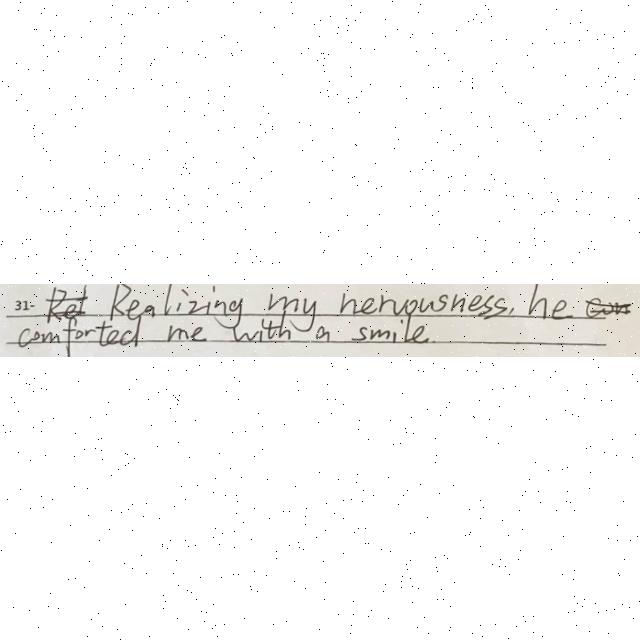 31- Realizing my nervousness, he
comforted me with a smile.